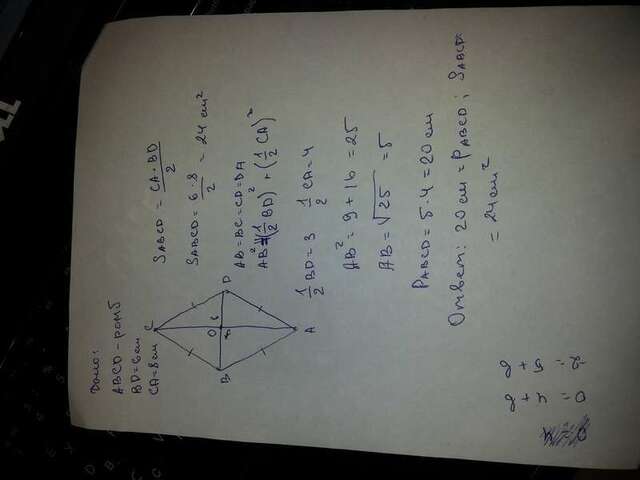 Дано:
ABCD - ромб
BD=6см
CA=8см
C
B
O
D
A
SABCD = CA·BD/2
SABCD = 6·8/2 = 24 см²
AB=BC=CD=DA
AB²=(1/2 BD)² + (1/2 CA)²
1/2 BD=3 1/2 CA=4
AB² = 9 + 16 = 25
AB = √25 = 5
PABCD = 5·4 = 20 см
Ответ: 20 см = PABCD ; SABCD =
= 24 см²